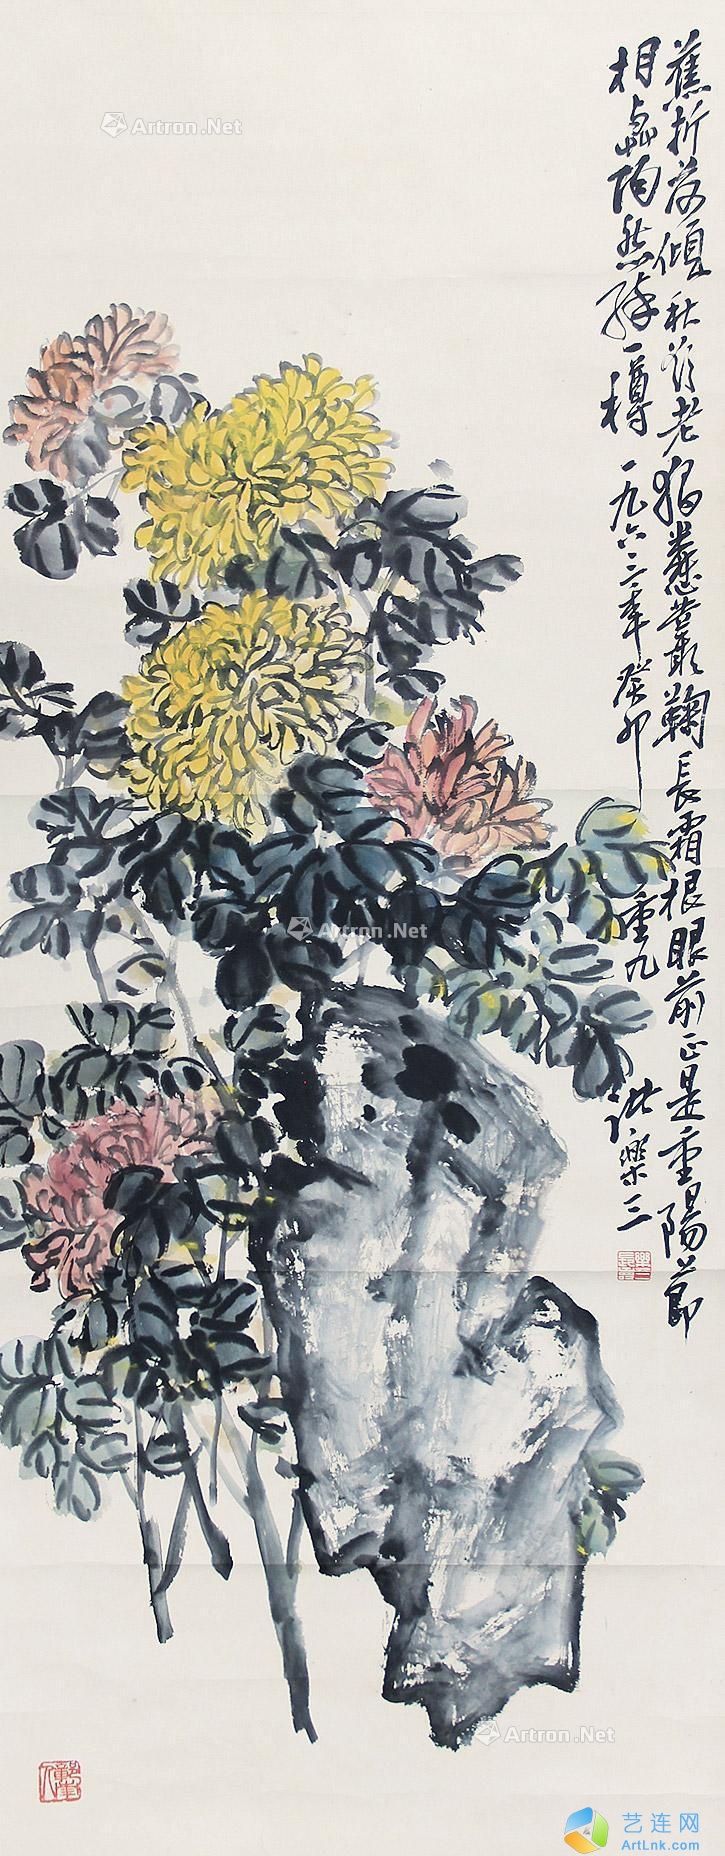 蕉折荷傾秋有老獨叢苦最鞠長霜根眼前正是重陽節
相與陶然醉一樽 一九六三年癸卯
重九
諸樂三
Artron.Net
Artron.Net
Artron.Net
艺连网
ArtLnk.com